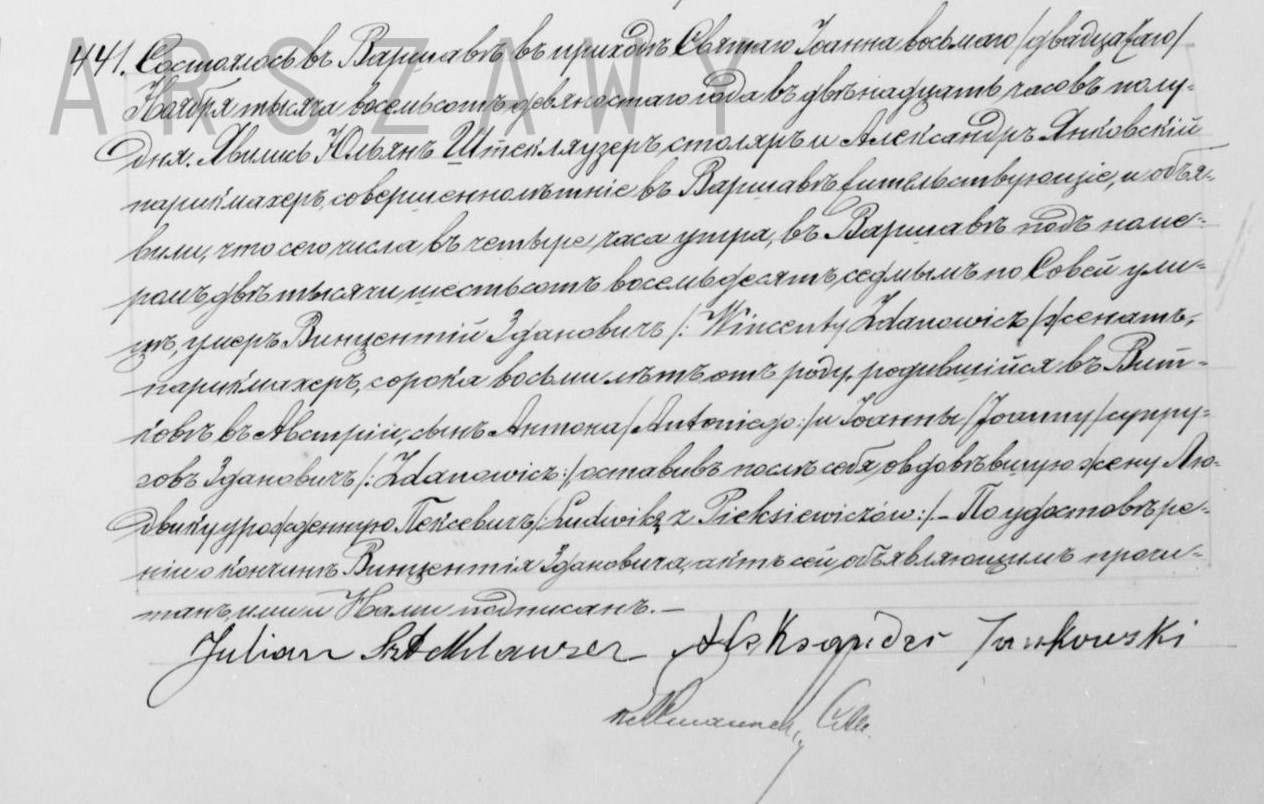 ARSZAWY
441. Состоялось въ Варшавѣ въ приходѣ Святаго Іоанна восьмаго /двадцатаго/
Ноября тысяча восемьсотъ девяностаго года въ двѣнадцать часовъ полу-
дня. Явились Юльянъ Штекляузеръ, столяръ и Александръ Янковскій
парикмахеръ, совершеннолѣтніе въ Варшавѣ жительствующіе, и объя-
вили, что сего числа, въ четыре часа утра, въ Варшавѣ подъ номе-
ромъ двѣ тысячи шестьсотъ восемьдесятъ седьмымъ по Совей ули-
цѣ, умеръ Винцентій Здановичъ /: Wincenty Zdanowicz /женатъ,
парикмахеръ, сорока восьми лѣтъ отъ роду, родившійся въ Вит-
ковѣ въ Австріи, сынъ Антона /Antoniego:/ и Іоанны /Joanny/ супру-
говъ Здановичъ /: Zdanowicz:/ оставивъ послѣ себя овдовѣвшую жену Лю-
двику урожденную Пексевичъ /: Ludwikę z Pieksiewiczów:/. – По удостовѣре-
ніи о кончинѣ Винцентія Здановича, актъ сей, объявляющимъ прочи-
танъ, ими и Нами подписанъ. –
Julian Sztekhlauzer Aleksander Jankowski